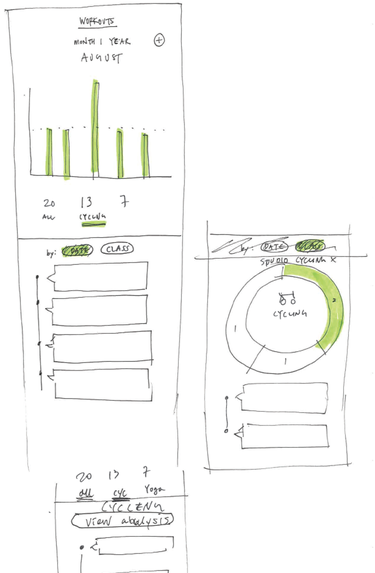 WORKOUTS
MONTH | YEAR
+
AUGUST
20 13 7
ALL CYCLING
by: DATE CLASS
by: DATE CLASS
STUDIO CYCLING X
2
CYCLING
1
1
20 13 7
All CYC Yoga
CYCLING
View analysis